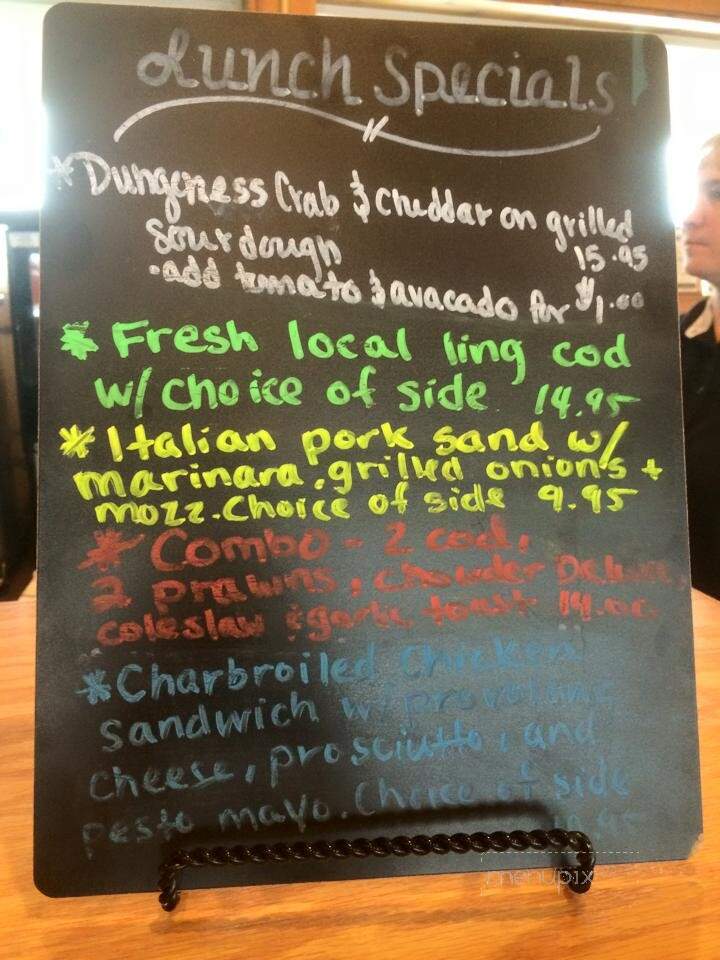 Lunch Specials
* Dungeness Crab & cheddar on grilled
sourdough 15.95
·add tomato & avacado for $1.00
* Fresh local ling cod
w/ choice of side 14.95
* Italian pork sand w/
marinara, grilled onions +
mozz. Choice of side 9.95
* Combo - 2 cod,
2 prawns, chowder
coleslaw & garlic toast 14.00
* Charbroiled Chicken
sandwich w/ provolone
cheese, prosciutto, and
pesto mayo. Choice of side
menupix